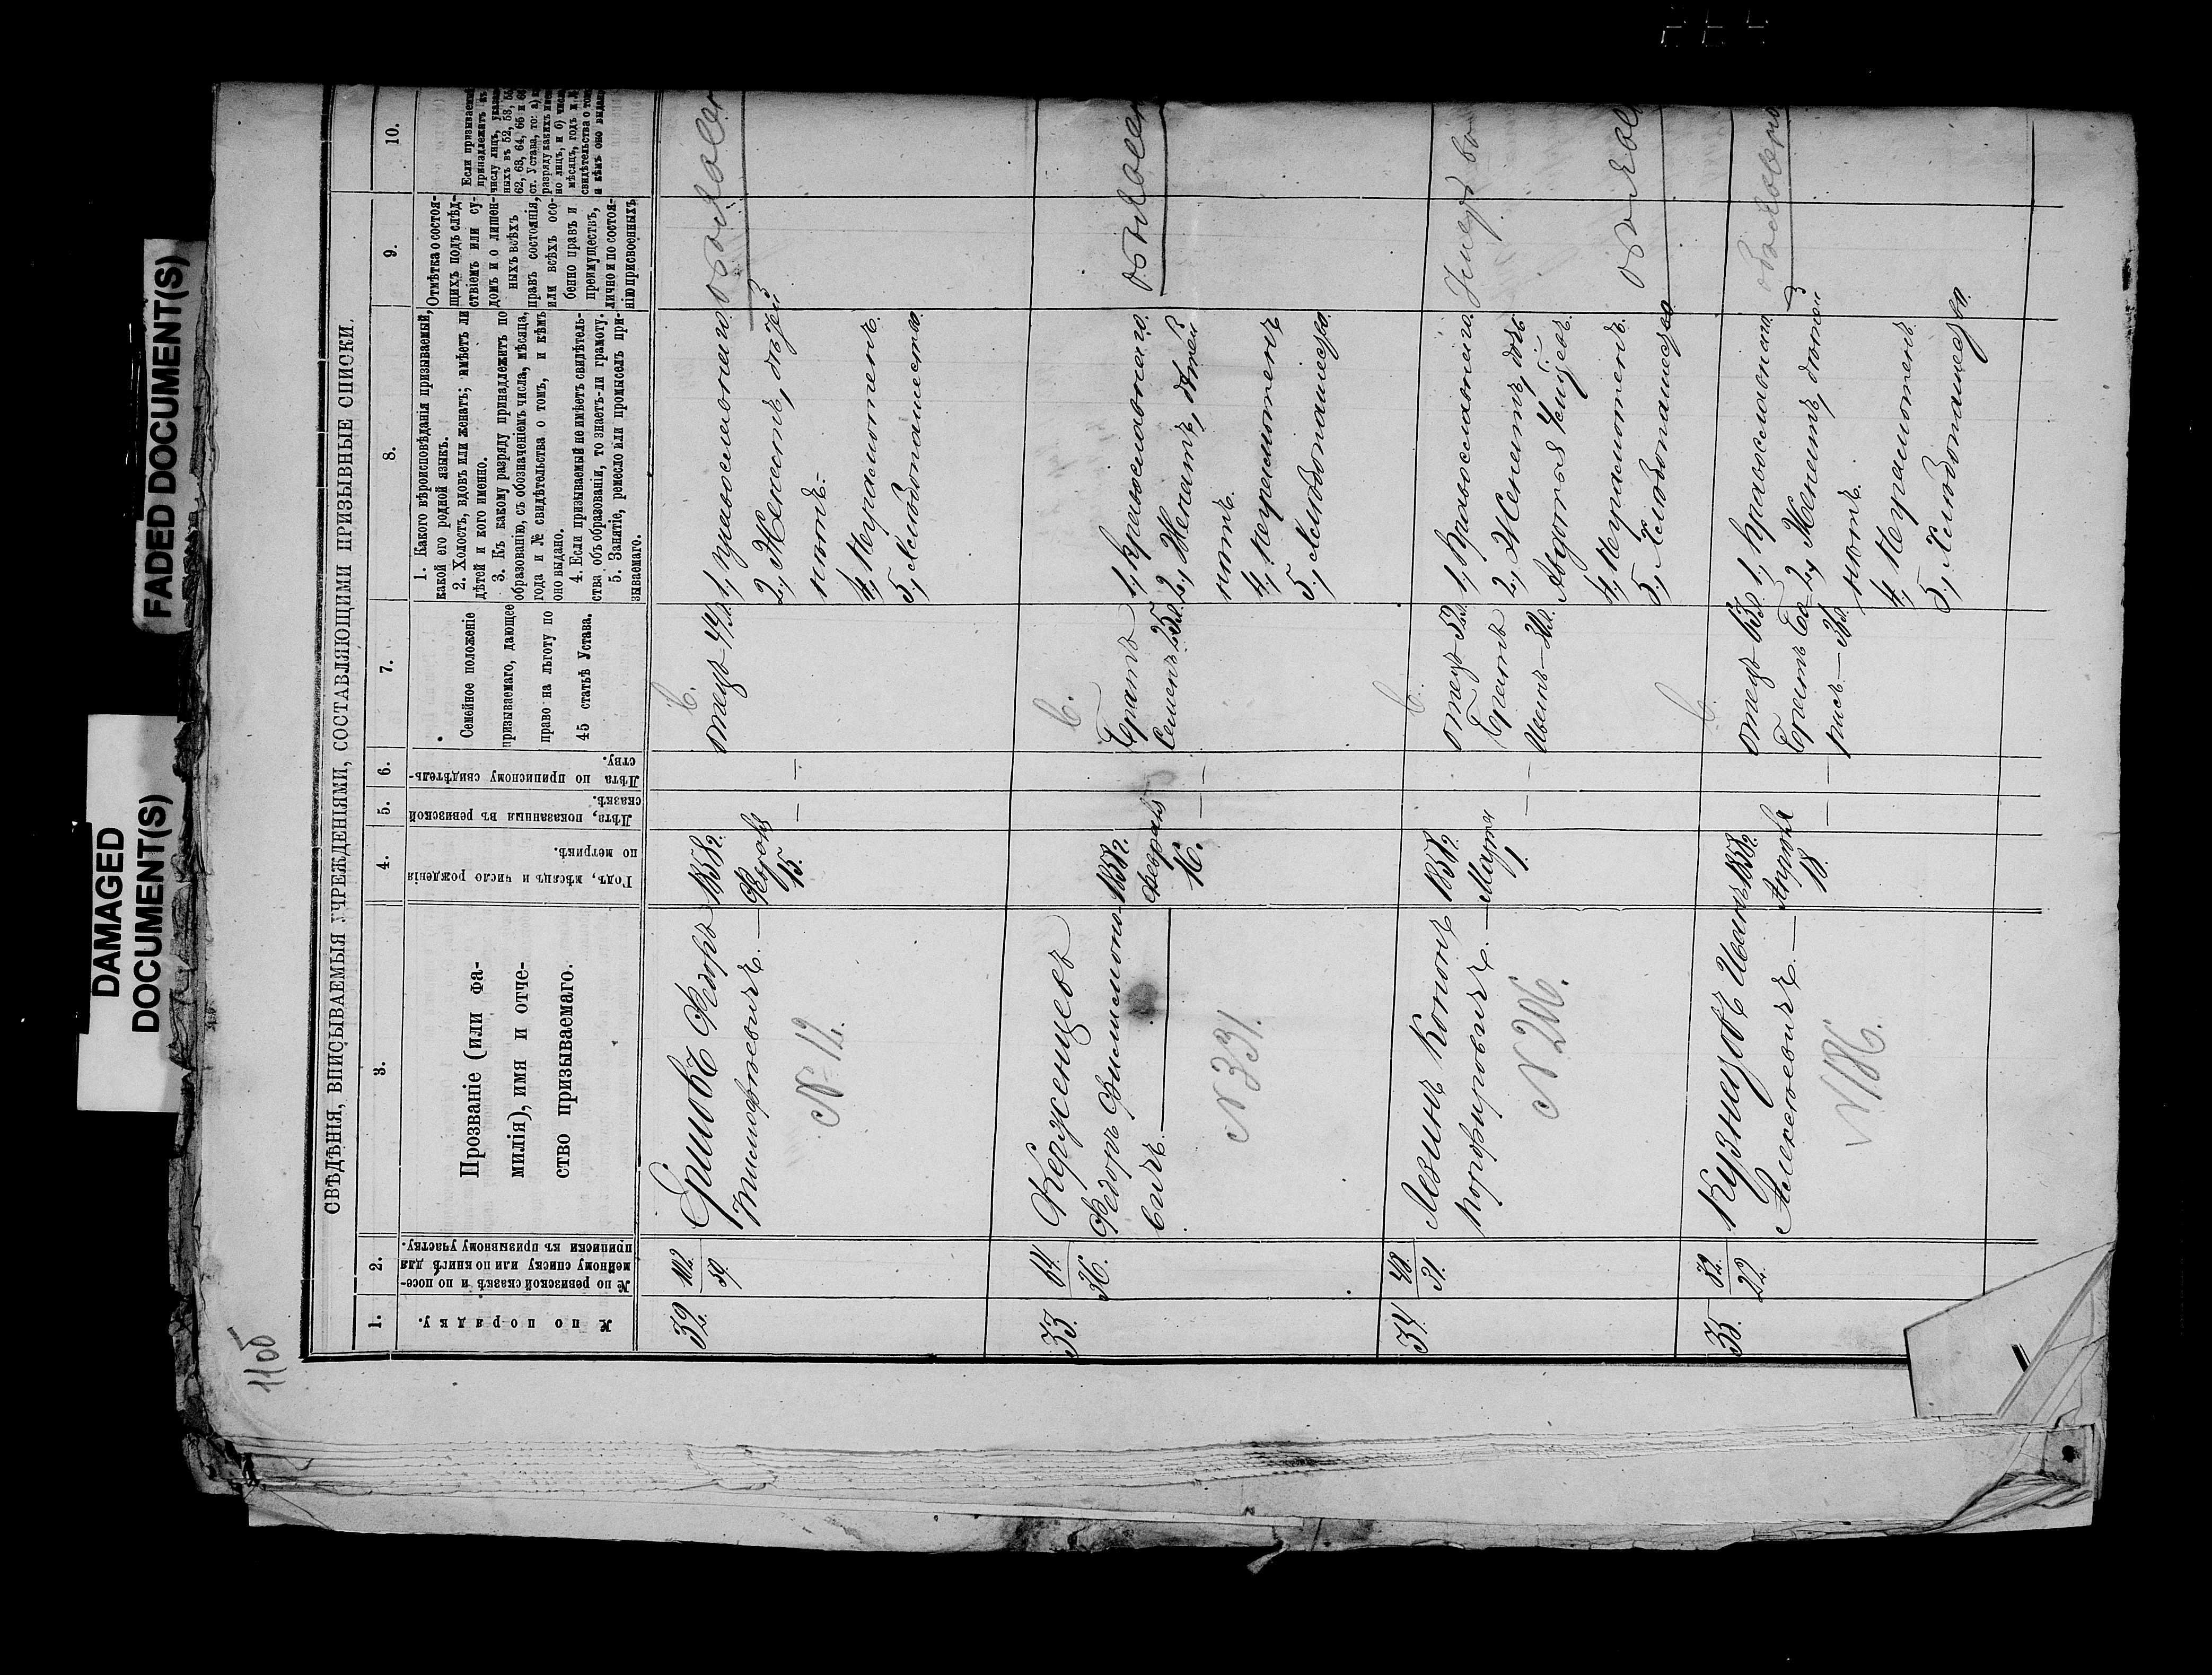 DAMAGED
DOCUMENT(S)
FADED DOCUMENT(S)
11об
СВѢДѢНІЯ, ВПИСЫВАЕМЫЯ УЧРЕЖДЕНІЯМИ, СОСТАВЛЯЮЩИМИ ПРИЗЫВНЫЕ СПИСКИ.
1.
2.
3.
4.
5.
6.
7.
8.
9.
10.
№ по порядку.
№ по ревизской сказкѣ и по посе-
мейному списку или по книгѣ для
приписки къ призывному участку.
Прозваніе (или фа-
милія), имя и отче-
ство призываемаго.
Годъ, мѣсяцъ и число рожденія
по метрикѣ.
Лѣта, показанныя въ ревизской
сказкѣ.
Лѣта по приписному свидѣтель-
ству.
Семейное положеніе
призываемаго, дающее
право на льготу по
45 статьѣ Устава.
1. Какого вѣроисповѣданія призываемый,
какой его родной языкъ.
2. Холостъ, вдовъ или женатъ; имѣетъ ли
дѣтей и кого именно.
3. Къ какому разряду принадлежитъ по
образованію, съ обозначеніемъ числа, мѣсяца,
года и № свидѣтельства о томъ, и кѣмъ
оно выдано.
4. Если призываемый не имѣетъ свидѣтель-
ства объ образованіи, то знаетъ-ли грамоту.
5. Занятіе, ремесло или промыселъ при-
зываемаго.
Отмѣтка о состоя-
щихъ подъ слѣд-
ствіемъ или су-
домъ и о лишен-
ныхъ всѣхъ
правъ состоянія,
или всѣхъ осо-
бенно правъ и
преимуществъ,
лично и по состоя-
нію присвоенныхъ
Если призываемый
принадлежитъ къ
числу лицъ, указан
ныхъ въ 52, 53,
62, 63, 64, 65 и 66
ст. Устава, то: а)
разряду какихъ
но лицъ, и б)
мѣсяцъ, годъ и №
свидѣтельства о том
и кѣмъ оно выдано
32
102.
59.
Ершовъ Ѳедоръ
Тимофѣевичъ. —
№ 12.
1858 г.
Февраля
15.
—
—
отецъ 44 л.
1., православнаго.
2., Женатъ, дѣтей
нѣтъ.
4., Неграмотенъ.
5., Хлебопашество.
33.
64.
36.
Керженцевъ
Ѳедоръ Филимоно-
вичъ. —
№ 331.
1858 г.
Февраля
16.
—
—
Братъ
Семенъ 25 л.
1., православнаго.
2., Женатъ, дѣтей
нѣтъ.
4., Неграмотенъ
5., Хлебопашество.
34.
48.
31.
Левинъ Кононъ
Порфировичъ. —
№ 206.
1858 г.
Марта
1.
—
—
отецъ 52 л.
Братъ
Иванъ
1., православнаго.
2., Женатъ, дочь
Авдотья
4., Неграмотенъ.
5., Хлебопашество
35.
32.
22.
Кузнецовъ Иванъ
Алексѣевичъ. —
№ 186.
1858 г.
Апрѣля
18.
—
—
отецъ 63 л.
Братъ Бо-
рисъ
1., православнаго.
2., Женатъ, дѣтей
нѣтъ.
4., Неграмотенъ.
5., Хлебопашество.